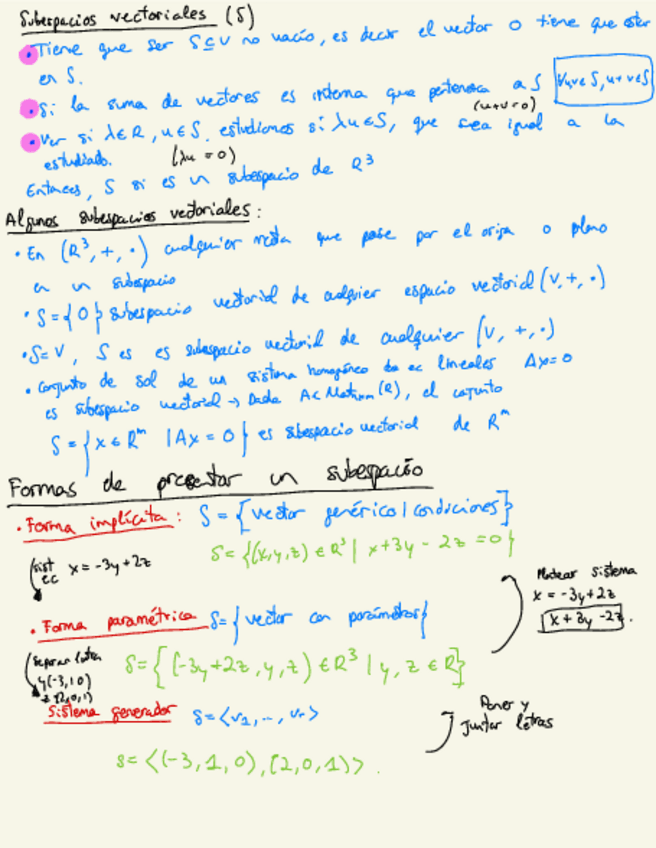 Subespacios vectoriales (S)
• Tiene que ser S⊆V no vacío, es decir el vector 0 tiene que estar
en S.
• Si la suma de vectores es interna que pertenezca a S ∀u,v∈S, u+v∈S
(u+v=0)
• Ver si λ∈R, u∈S, estudiamos si λu∈S, que sea igual a lo
estudiado. (λu=0)
Entonces, S si es un subespacio de R³
Algunos subespacios vectoriales:
• En (R³, +, ·) cualquier recta que pase por el orijen o plano
es un subespacio
• S={0} subespacio vectorial de cualquier espacio vectorial (V,+,·)
• S=V, S es es subespacio vectorial de cualquier (V, +, ·)
• conjunto de sol de un sistema homogéneo de ec lineales Ax=0
es subespacio vectorial → Dada A∈Mat (R), el conjunto
S={x∈Rᵐ |Ax=0} es subespacio vectorial de Rᵐ
Formas de presentar un subespacio
• Forma implícita: S={vector genérico | condiciones}
S={(x,y,z)∈R³ | x+3y-2z=0}
sist ec x=-3y+2z
sistema
x=-3y+2z
x+3y-2z.
• Forma paramétrica S={vector con parámetros}
Separar letra
y(-3,1,0)
z(2,0,1)
S={(-3y+2z,y,z)∈R³ | y,z∈R}
Sistema generador S=<v₁,..,vᵣ>
Poner y
Juntar letras
S=<(-3,1,0),(2,0,1)>.